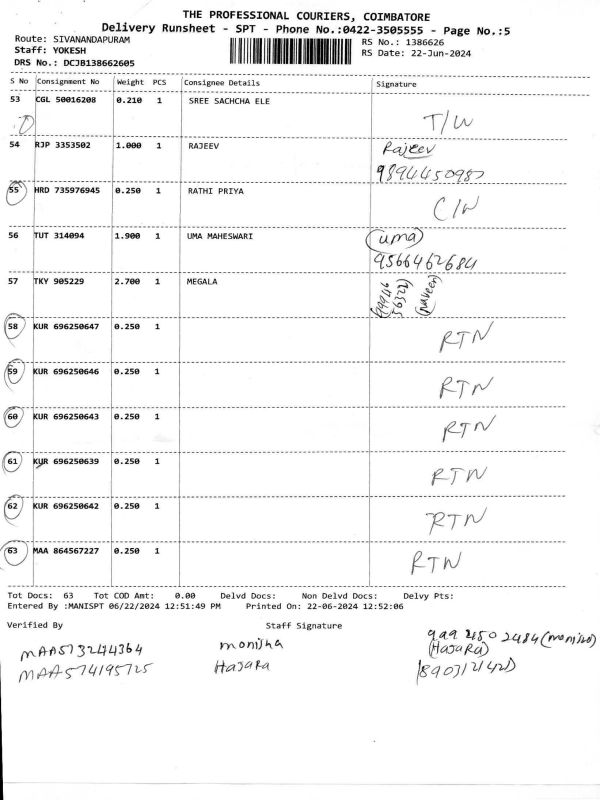 THE PROFESSIONAL COURIERS, COIMBATORE
Delivery Runsheet - SPT - Phone No.:0422-3505555 - Page No.:5
Route: SIVANANDAPURAM RS No.: 1386626
Staff: YOKESH RS Date: 22-Jun-2024
DRS No.: DCJB138662605
S No Consignment No Weight PCS Consignee Details Signature
53 CGL 50016208 0.210 1 SREE SACHCHA ELE
T/W
54 RJP 3353502 1.000 1 RAJEEV Rajeev
9894450987
55 HRD 735976945 0.250 1 RATHI PRIYA
C/W
56 TUT 314094 1.900 1 UMA MAHESWARI (uma)
9566462684
57 TKY 905229 2.700 1 MEGALA
(naveen)
58 KUR 696250647 0.250 1 RTN
59 KUR 696250646 0.250 1 RTN
60 KUR 696250643 0.250 1 RTN
61 KUR 696250639 0.250 1 RTN
62 KUR 696250642 0.250 1 RTN
63 MAA 864567227 0.250 1 RTN
Tot Docs: 63 Tot COD Amt: 0.00 Delvd Docs: Non Delvd Docs: Delvy Pts:
Entered By :MANISPT 06/22/2024 12:51:49 PM Printed On: 22-06-2024 12:52:06
Verified By Staff Signature
MAA573244364 monisha (monisha)
MAA574195725 HaJaRa (HaJaRa)